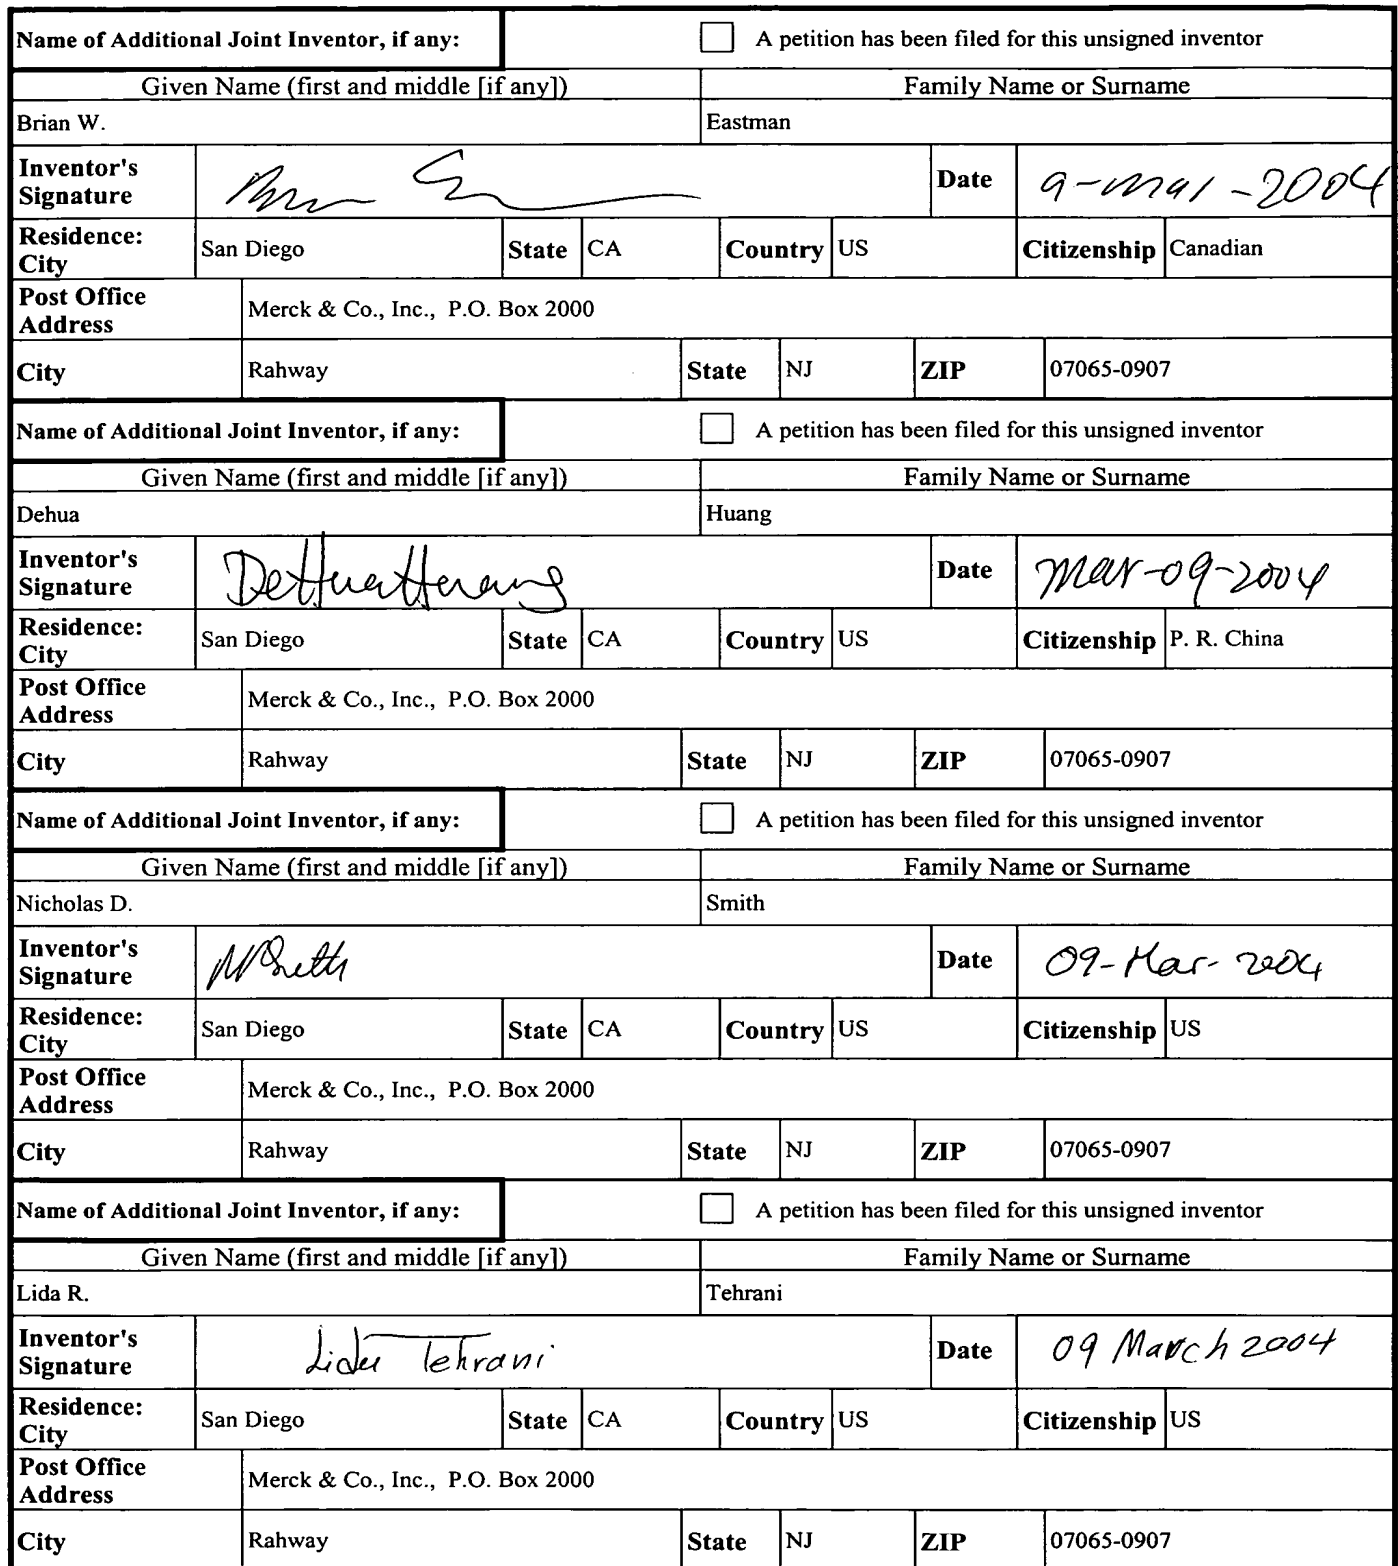 Name of Additional Joint Inventor, if any: A petition has been filed for this unsigned inventor
Given Name (first and middle [if any]) Family Name or Surname
Brian W. Eastman
Inventor's Signature Date 9-Mar-2004
Residence: City San Diego State CA Country US Citizenship Canadian
Post Office Address Merck & Co., Inc., P.O. Box 2000
City Rahway State NJ ZIP 07065-0907
Name of Additional Joint Inventor, if any: A petition has been filed for this unsigned inventor
Given Name (first and middle [if any]) Family Name or Surname
Dehua Huang
Inventor's Signature DeHua Huang Date Mar-09-2004
Residence: City San Diego State CA Country US Citizenship P. R. China
Post Office Address Merck & Co., Inc., P.O. Box 2000
City Rahway State NJ ZIP 07065-0907
Name of Additional Joint Inventor, if any: A petition has been filed for this unsigned inventor
Given Name (first and middle [if any]) Family Name or Surname
Nicholas D. Smith
Inventor's Signature Date 09-Mar-2004
Residence: City San Diego State CA Country US Citizenship US
Post Office Address Merck & Co., Inc., P.O. Box 2000
City Rahway State NJ ZIP 07065-0907
Name of Additional Joint Inventor, if any: A petition has been filed for this unsigned inventor
Given Name (first and middle [if any]) Family Name or Surname
Lida R. Tehrani
Inventor's Signature Lida Tehrani Date 09 March 2004
Residence: City San Diego State CA Country US Citizenship US
Post Office Address Merck & Co., Inc., P.O. Box 2000
City Rahway State NJ ZIP 07065-0907